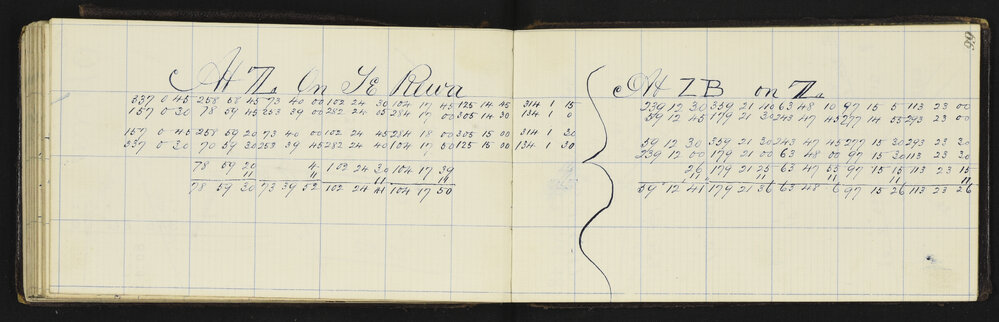 99
At TL On TE Rewa
337 0 45 258 58 45 73 40 00 102 24 30 104 17 45 125 14 45 314 1 15
157 0 30 78 59 45 253 39 00 282 24 05 284 17 00 305 14 30 134 1 0
157 0 45 258 59 20 73 40 00 102 24 45 284 18 00 305 15 00 314 1 30
337 0 30 70 59 30 253 39 45 282 24 40 104 17 50 125 15 00 134 1 30
78 59 20 102 24 30 104 17 39
11 11 11
78 59 30 73 39 52 102 24 41 104 17 50
At ZB on TL
239 12 30 359 21 40 63 48 10 97 15 5 113 23 00
59 12 45 179 21 30 243 47 45 277 14 55 293 23 00
59 12 30 359 21 30 243 47 45 277 15 30 293 23 30
239 12 00 179 21 00 63 48 00 97 15 30 113 23 30
26 179 21 25 63 47 55 97 15 15 113 23 15
11 11 11 11
59 12 41 179 21 36 63 48 6 97 15 26 113 23 26